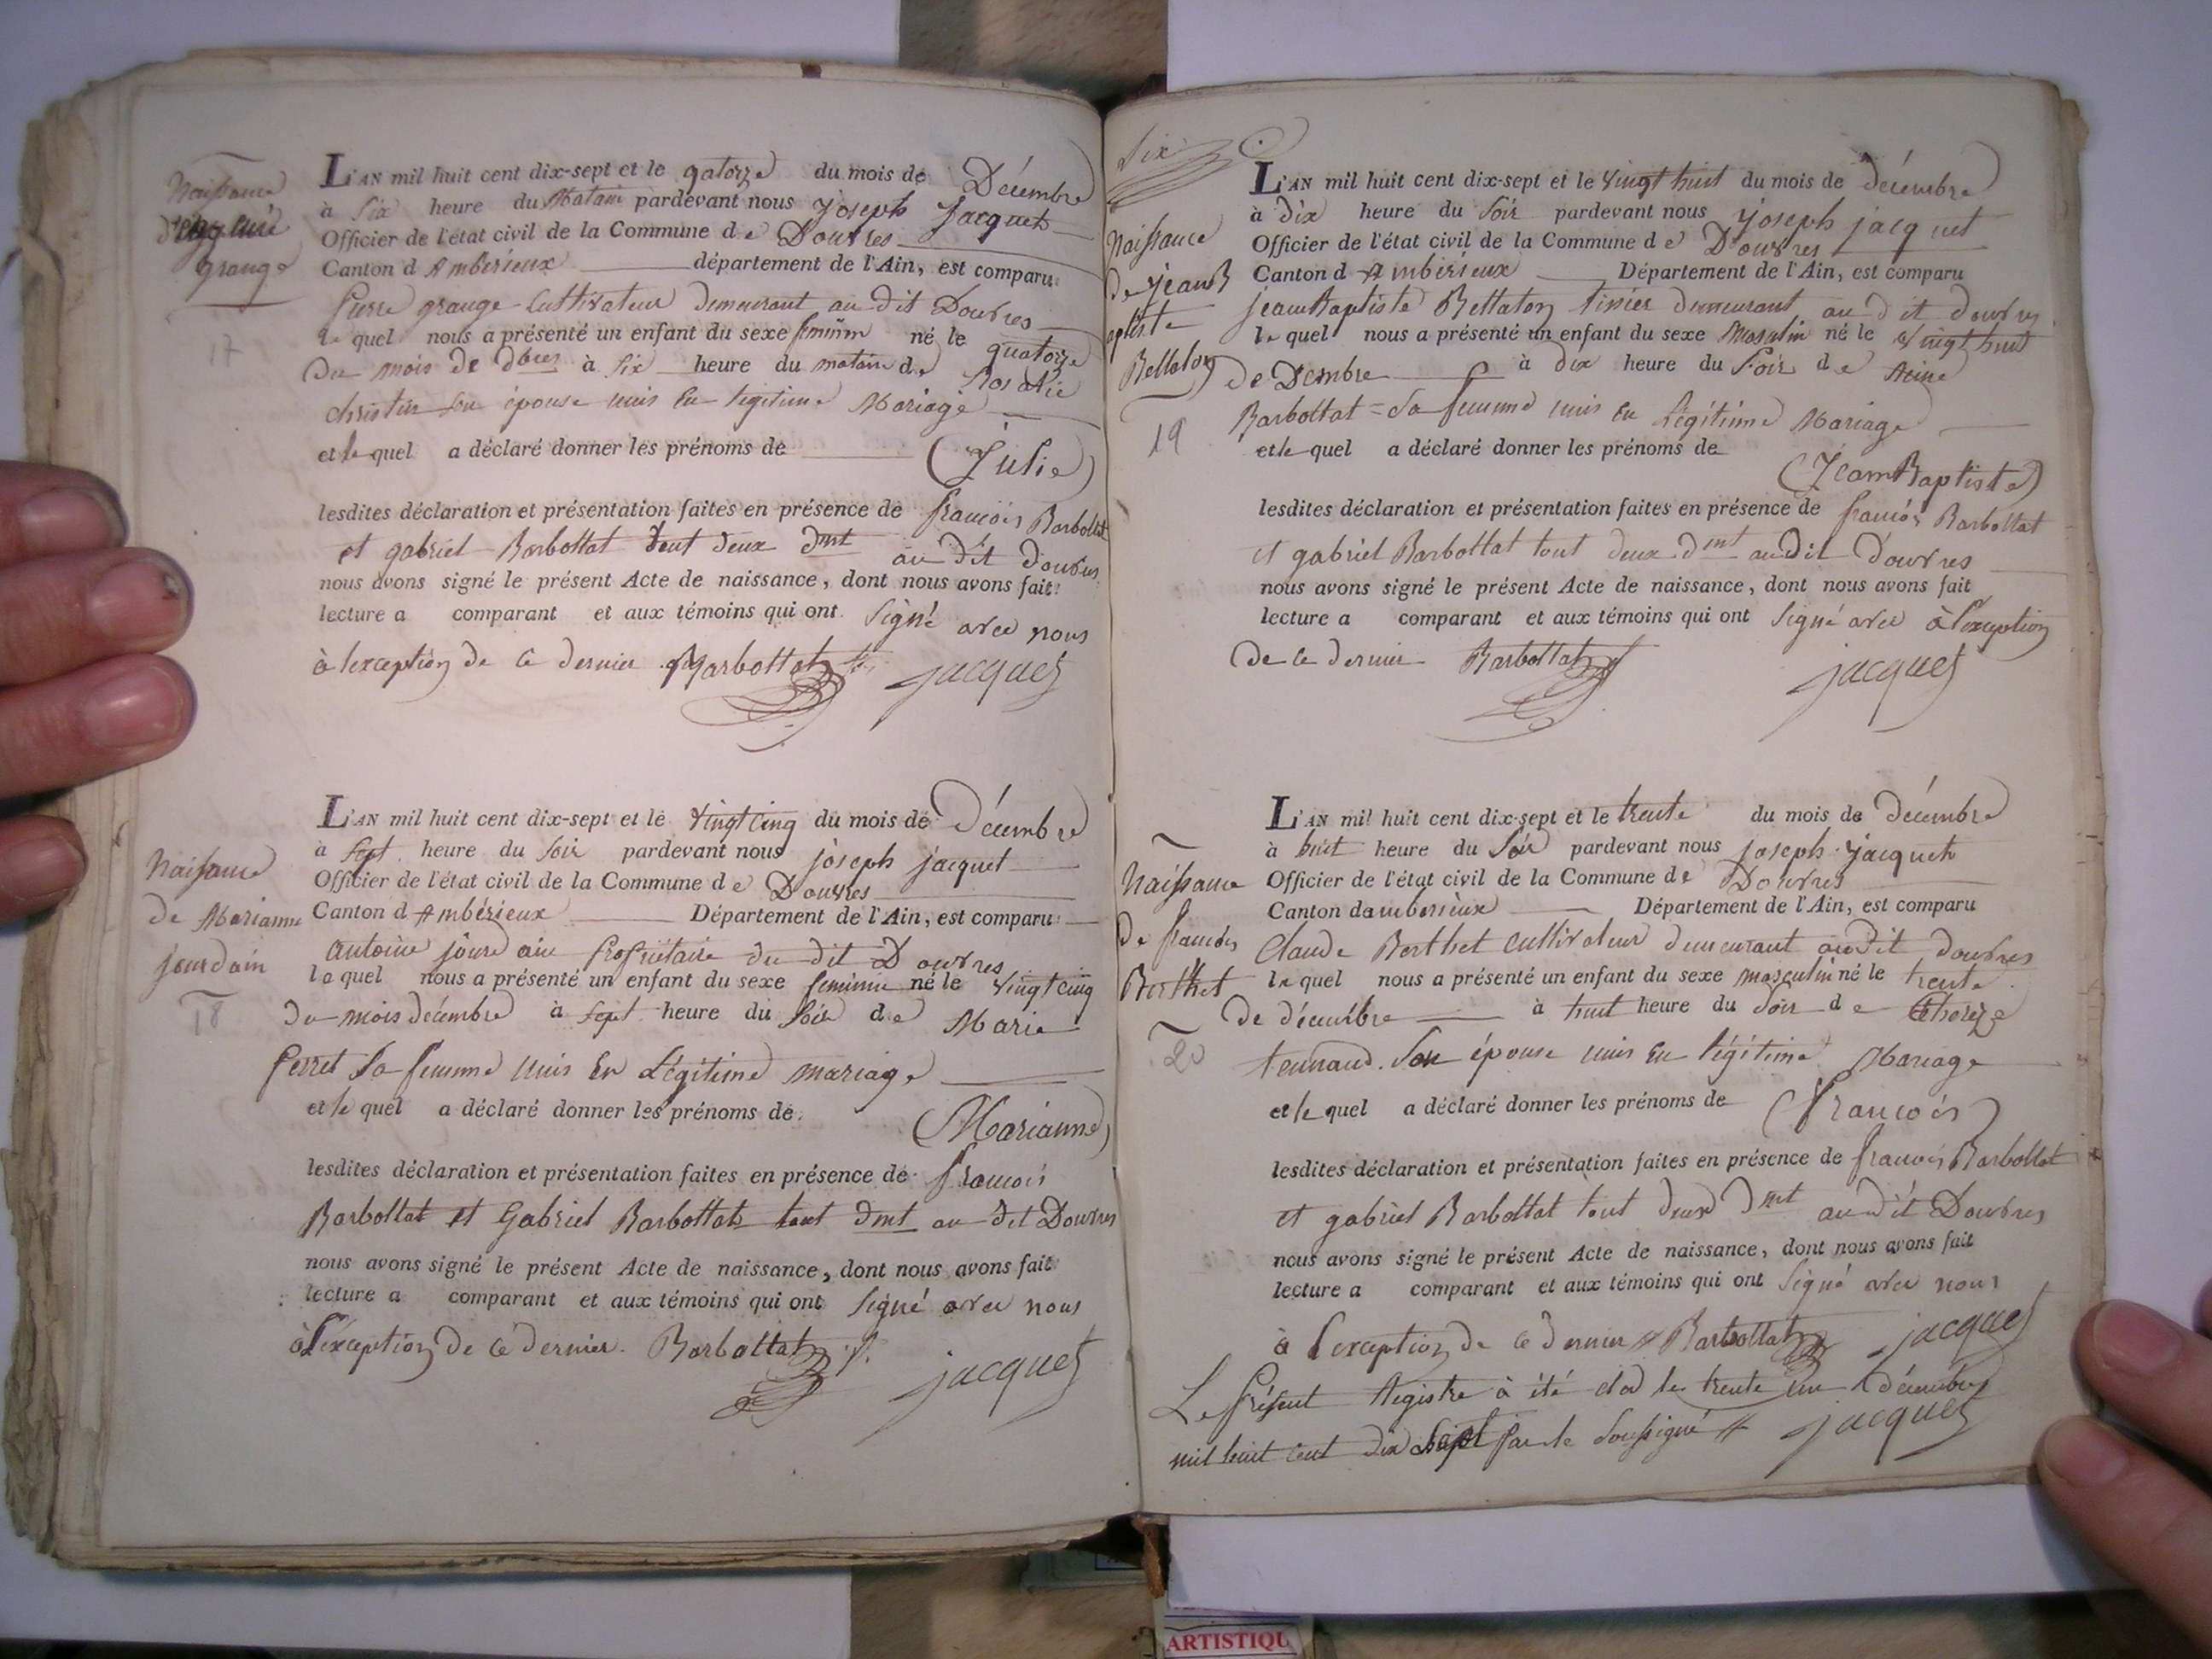 Naissance
grange
17
L'AN mil huit cent dix-sept et le qatorze du mois de Décembre
à Six heure du Matain pardevant nous joseph jacquet
Officier de l'état civil de la Commune de Douvres
Canton d Ambérieux département de l'Ain, est comparu
Pierre grange Cultivateur demeurant au dit Douvres
le quel nous a présenté un enfant du sexe feminin né le quatorze
du mois de dbres à Six heure du matain de Rosalie
christin son épouse unis En legitime Mariage
et le quel a déclaré donner les prénoms de
(Julie)
lesdites déclaration et présentation faites en présence de francois Barbollat
et gabriel Barbottat tout deux dmt au dit douvres
nous avons signé le présent Acte de naissance, dont nous avons fait
lecture a comparant et aux témoins qui ont Signé avec nous
à lexception de ce dernier Barbottat jacquet
Naissance
de Marianne
jourdain
18
L'AN mil huit cent dix-sept et le vingt cinq du mois de Décembre
à Sept heure du Soir pardevant nous joseph jacquet
Officier de l'état civil de la Commune de Douvres
Canton d Ambérieux Département de l'Ain, est comparu
antoine jourdain Propriétaire du dit Douvres
le quel nous a présenté un enfant du sexe feminin né le vingt cinq
du mois décembre à Sept heure du Soir de Marie
Perret Sa femme Unis En Légitime mariage
et le quel a déclaré donner les prénoms de
(Marianne)
lesdites déclaration et présentation faites en présence de francois
Barbollat et Gabriel Barbottat tout dmt au dit Douvres
nous avons signé le présent Acte de naissance, dont nous avons fait
lecture a comparant et aux témoins qui ont Signé avec nous
à l'éxception de ce dernier. Barbottat jacquet
Six
Naissance
de jeanB
aptiste
Bettaton
19
L'AN mil huit cent dix-sept et le vingt huit du mois de décembre
à dix heure du Soir pardevant nous joseph jacquet
Officier de l'état civil de la Commune de Douvres
Canton d Ambérieux Département de l'Ain, est comparu
jeanBaptiste Bettaton tisier demeurant au dit douvres
le quel nous a présenté un enfant du sexe Masulin né le vingt huit
de Dembre à dix heure du Soir de Reine
Barbottat = Sa femme unis En Légitime Mariage
et le quel a déclaré donner les prénoms de
(JeanBaptiste)
lesdites déclaration et présentation faites en présence de francois Barbottat
et gabriel Barbottat tout deux dmt au dit douvres
nous avons signé le présent Acte de naissance, dont nous avons fait
lecture a comparant et aux témoins qui ont Signé avec à l'exception
de ce dernier Barbottat jacquet
Naissance
de francois
Berthet
20
L'AN mil huit cent dix-sept et le trente du mois de décembre
à huit heure du Soir pardevant nous joseph jacquet
Officier de l'état civil de la Commune de Douvres
Canton dambérieux Département de l'Ain, est comparu
Claude Berthet cultivateur demeurant audit douvres
le quel nous a présenté un enfant du sexe masculin né le trente
de décembre à huit heure du Soir de thereze
tennand. Son épouse unis En légitime Mariage
et le quel a déclaré donner les prénoms de (francois)
lesdites déclaration et présentation faites en présence de francois Barbollat
et gabriel Barbottat tout deux dmt au dit Douvres
nous avons signé le présent Acte de naissance, dont nous avons fait
lecture a comparant et aux témoins qui ont Signé avec nous
à l'exception de ce dernier Barbottat jacquet
Le Présent Registre à été clos le trente un décembre
mil huit cent dix Sept par le Soussigné jacquet
ARTISTIQU